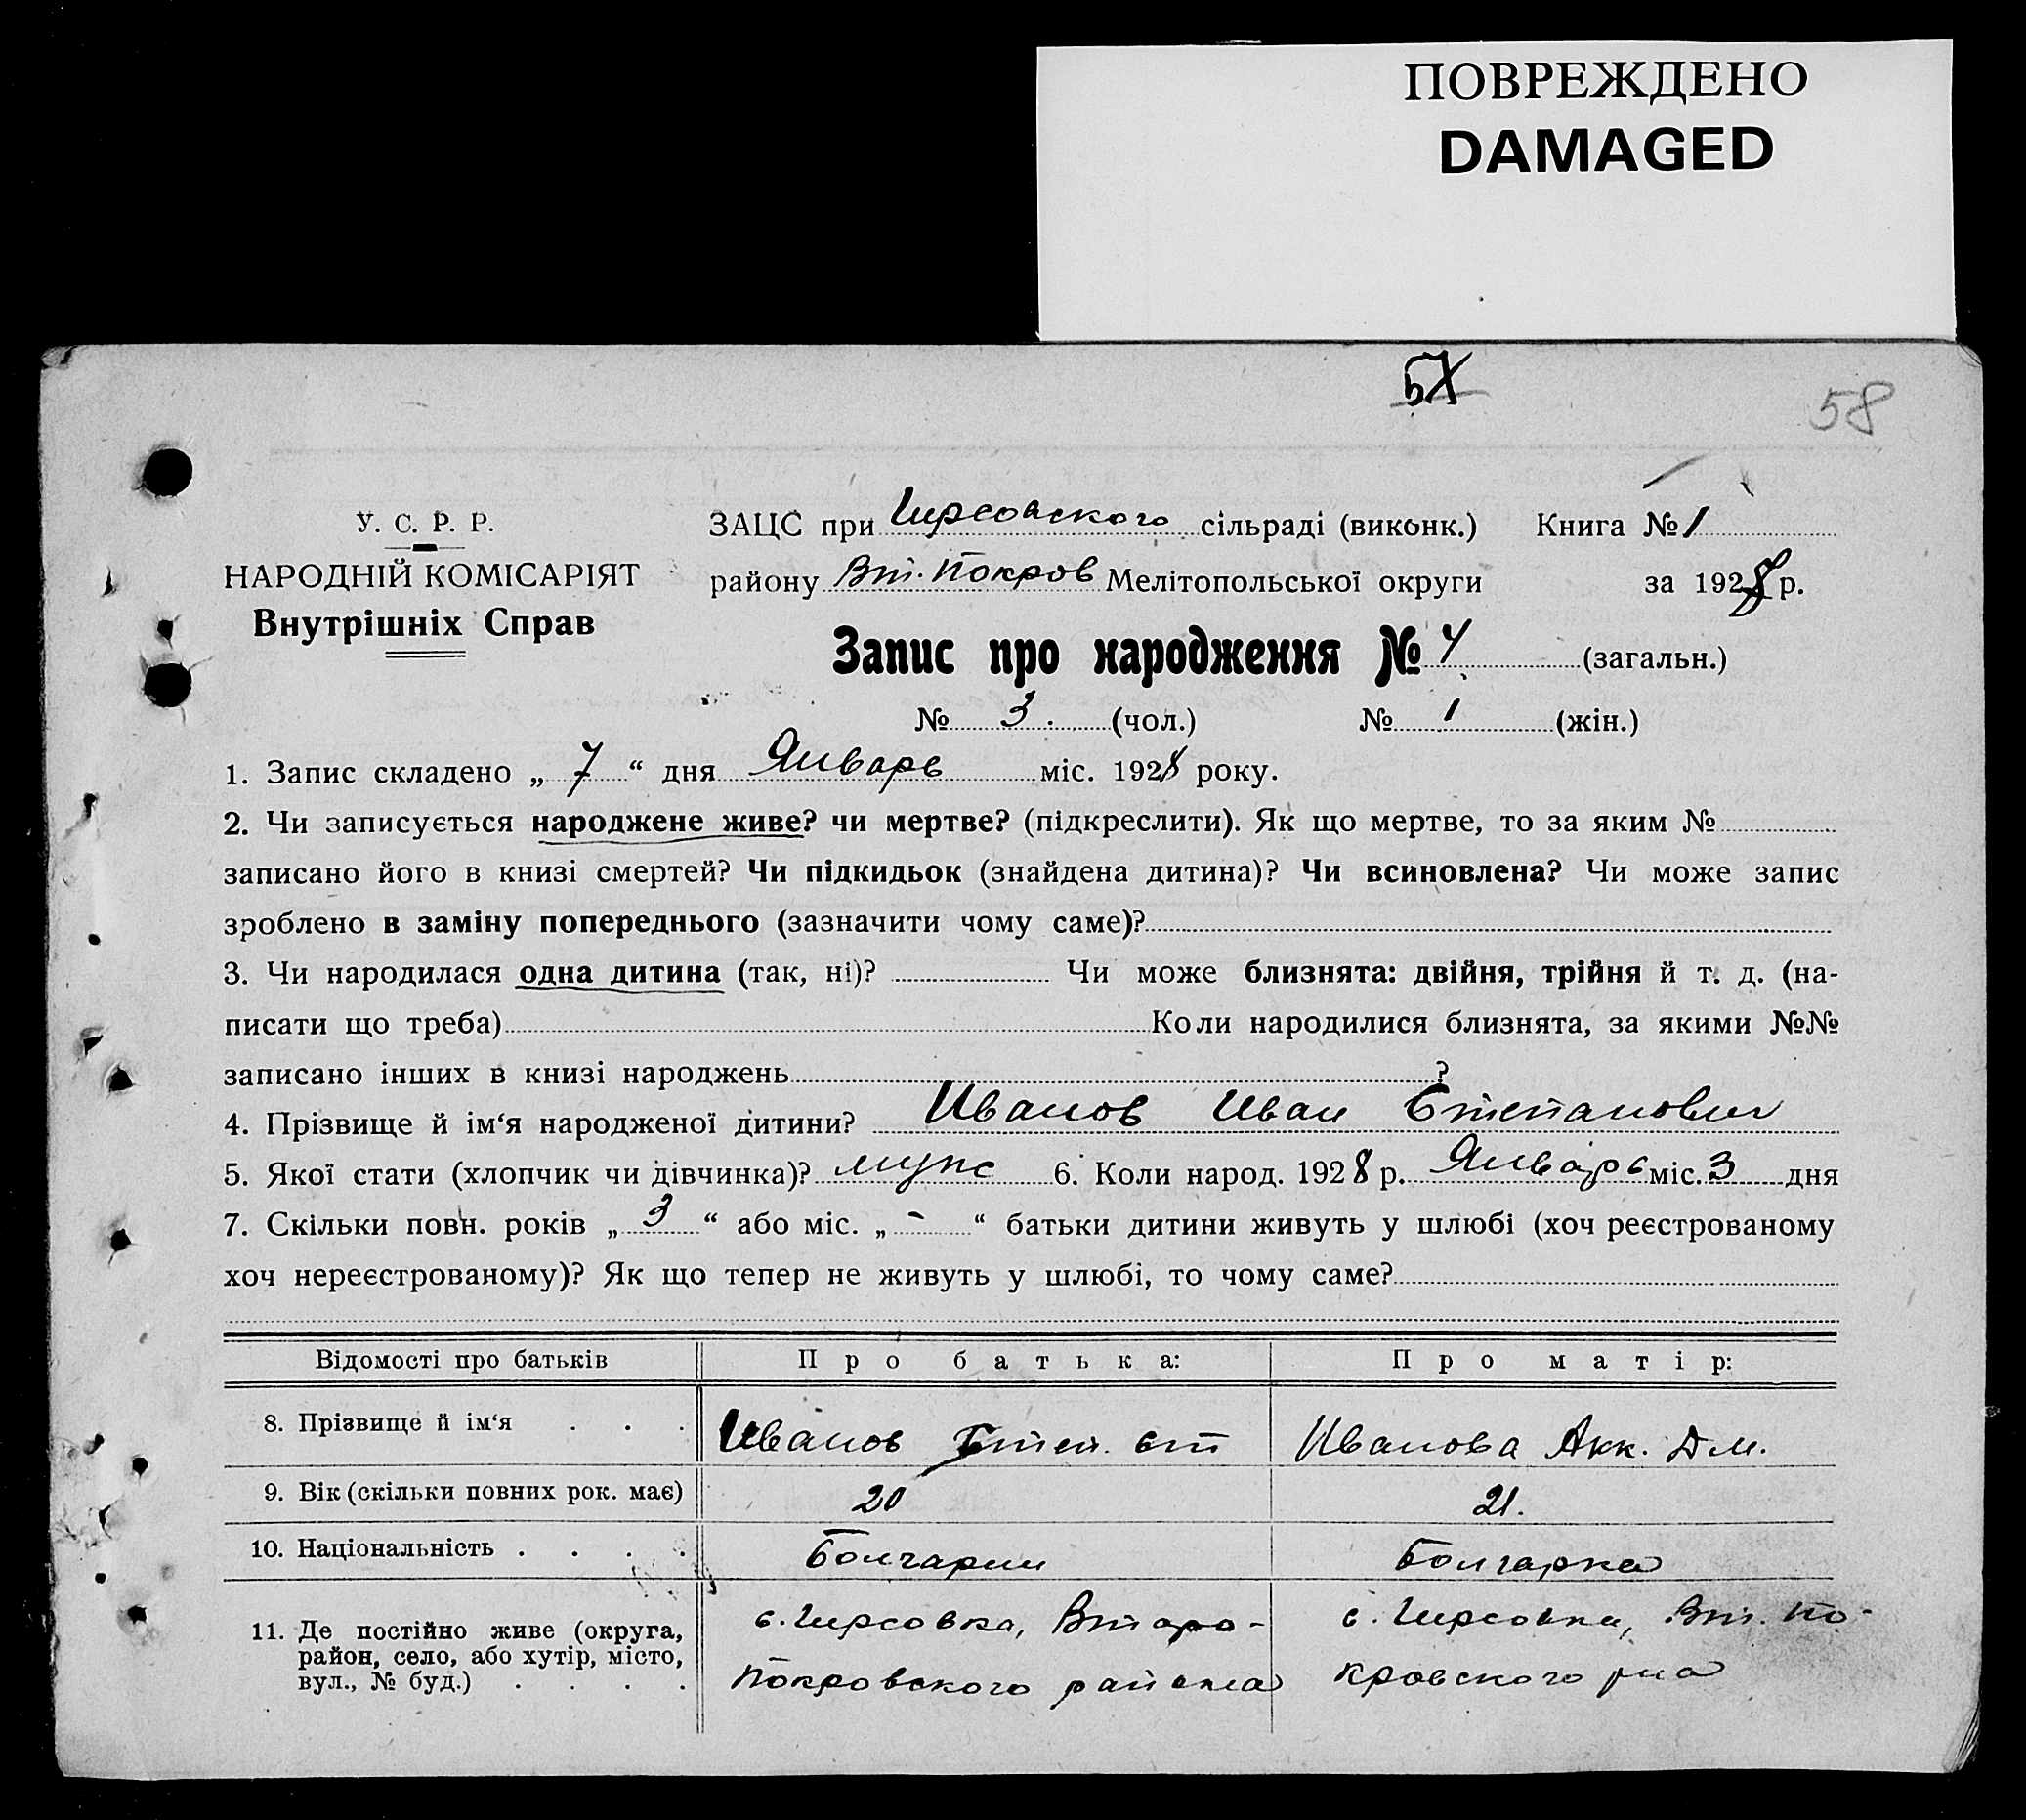 ПОВРЕЖДЕНО
DAMAGED
57
58
У. С. Р. Р.
НАРОДНІЙ КОМІСАРІЯТ
Внутрішніх Справ
ЗАЦС при Гирсовского сільраді (виконк.) Книга № 1
району Вт. Покров Мелітопольської округи за 1928 р.
Запис про народження № 4 (загальн.)
№ 3 (чол.) № 1 (жін.)
1. Запис складено „ 7 “ дня Январь міс. 1928 року.
2. Чи записується народжене живе? чи мертве? (підкреслити). Як що мертве, то за яким №
записано його в книзі смертей? Чи підкидьок (знайдена дитина)? Чи всиновлена? Чи може запис
зроблено в заміну попереднього (зазначити чому саме)?
3. Чи народилася одна дитина (так, ні)? Чи може близнята: двійня, трійня й т. д. (на-
писати що треба) Коли народилися близнята, за якими №№
записано інших в книзі народжень ?
4. Прізвище й ім‘я народженої дитини? Иванов Иван Степанович
5. Якої стати (хлопчик чи дівчинка)? мужс 6. Коли народ. 1928 р. Январь міс. 3 дня
7. Скільки повн. років „ 3 “ або міс. „ - “ батьки дитини живуть у шлюбі (хоч реєстрованому
хоч нереєстрованому)? Як що тепер не живуть у шлюбі, то чому саме?
Відомості про батьків Про батька: Про матір:
8. Прізвище й ім‘я . . . Иванов Степ. Ст Иванова Акк. Дм.
9. Вік (скільки повних рок. має) 20 21.
10. Національність . . . . Болгарин Болгарка
11. Де постійно живе (округа, район, село, або хутір, місто, вул., № буд.) . . . . с. Гирсовка, Второ-
Покровского района с. Гирсовка, Вт. По-
кровского рна